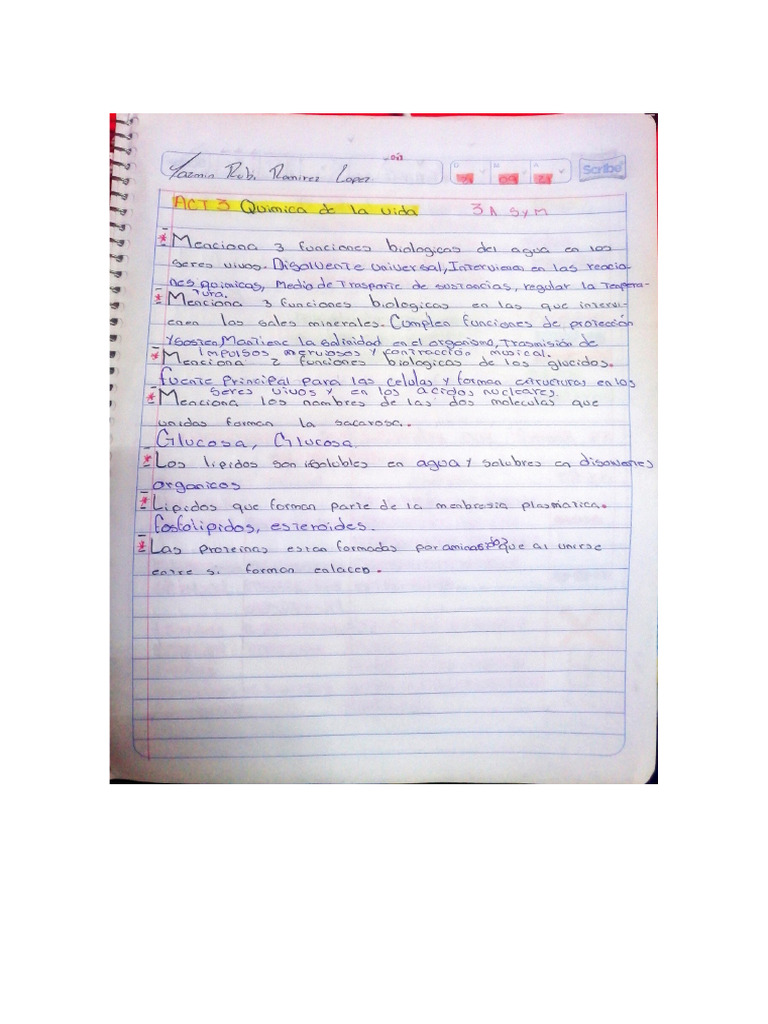 Yazmin Rubi Ramirez Lopez
Scribe
ACT 3 Quimica de la vida 3 A S y M
* Menciona 3 funciones biologicas del agua en los
seres vivos. Disolvente universal, Intervienen en las reaccio-
nes quimicas, Medio de Trasporte de sustancias, regular la Tempera-
tura.
* Menciona 3 funciones biologicas en las que intervi-
enen las sales minerales. Cumplen funciones de protección
y sosten, Mantiene la salinidad en el organismo, Trasmisión de
Impulsos nerviosos y contracción musical.
* Menciona 2 funciones biologicas de los glucidos.
fuente principal para las celulas y forman estructuras en los
seres vivos y en los acidos nucleares.
* Menciona los nombres de las dos moleculas que
unidas forman la sacarosa.
Glucosa, Glucosa
* Los lipidos son isolubles en agua y solubres en disolvenes
organicos
* Lipidos que forman parte de la menbresia plasmatica.
fosfolipidos, esteroides.
* Las proteinas estan formadas por que al unirse
entre si forman enlaces.